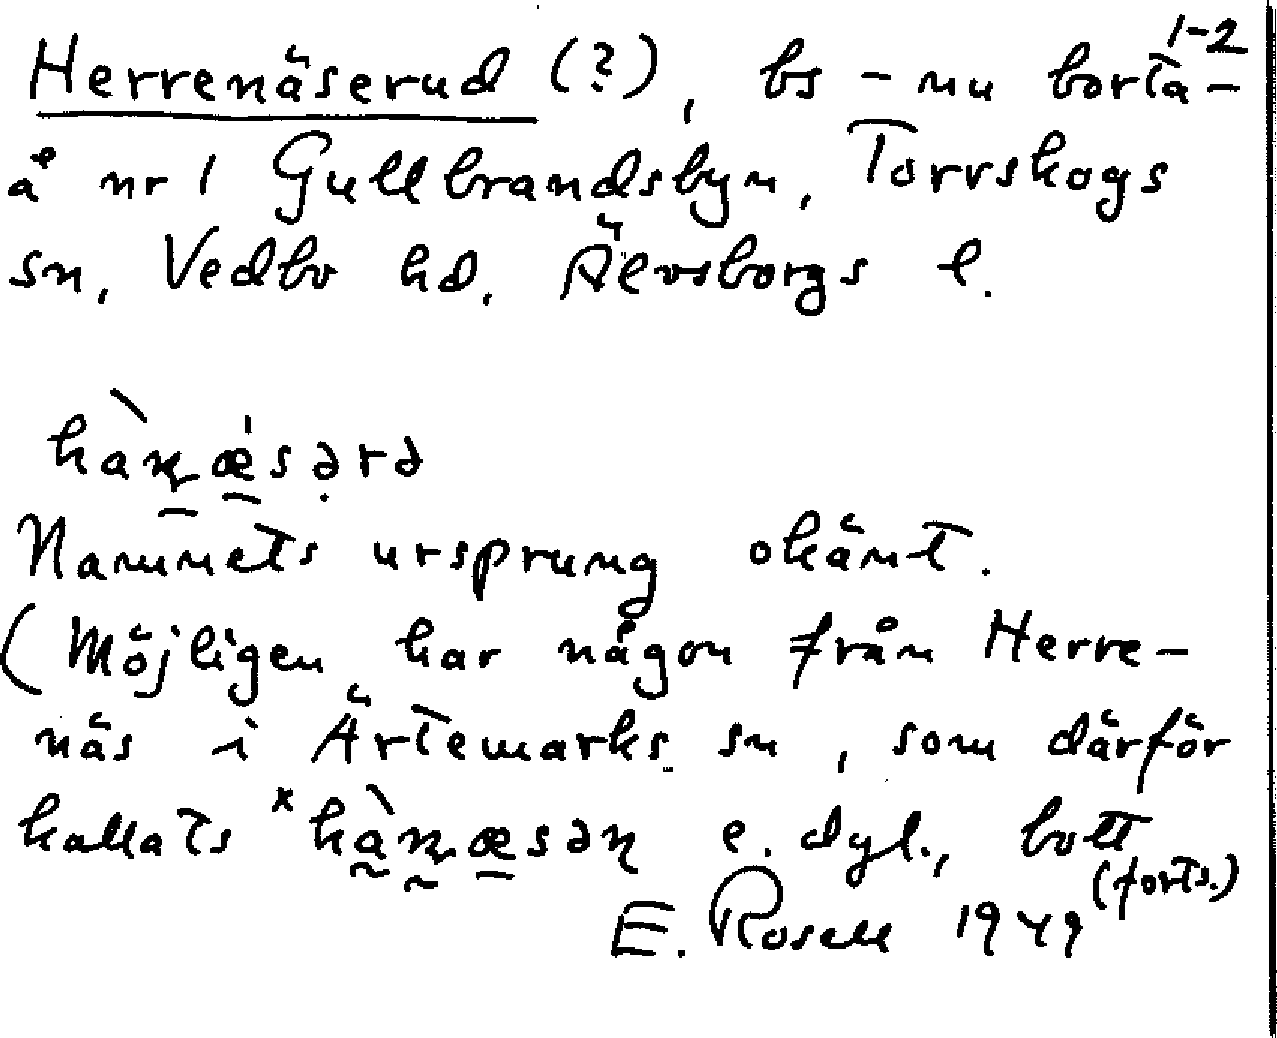 1-2
Herrenäserud (?), bs - nu borta -
å nr 1 Gullbrandsbyn, Torrskogs
sn, Vedbo hd, Älvsborgs l.
hàn̠æ̠´sərə
Namnets ursprung okänt.
(Möjligen har någon från Herre-
näs i Ärtemarks sn, som därför
kallats *hàn̠æ̠səɳ e. dyl., bott
(forts.)
E. Rosell 1949